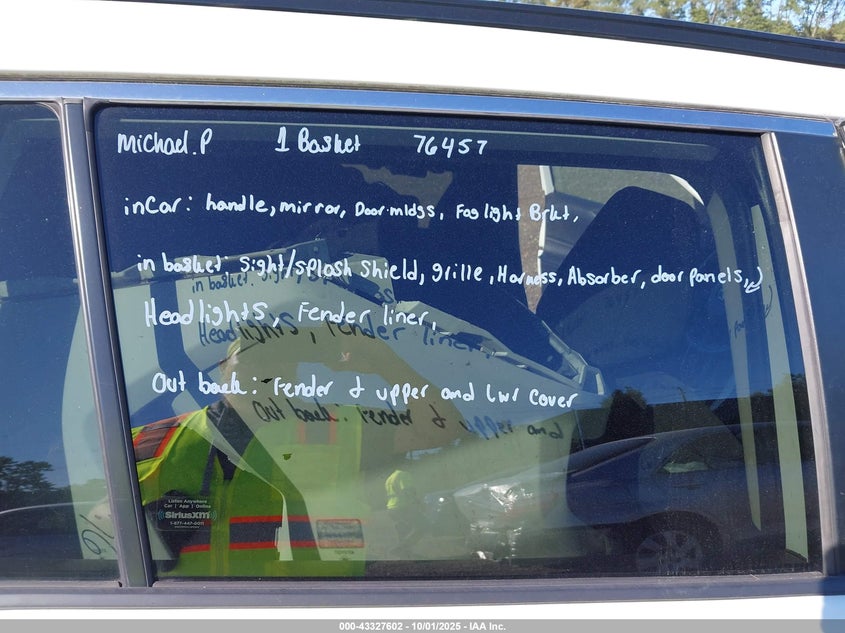 Michael.P 1 Basket 76457
inCar: handle, mirror, Door mldgs, Fog light Brkt,
in basket: Sight/splash Shield, grille, Harness, Absorber, door panels,
Headlights, Fender liner,
Out back: Fender & upper and lwr cover
Listen Anywhere
Car | App | Online
SiriusXM
1-877-447-0011
000-43327602 • 10/01/2025 - IAA Inc.